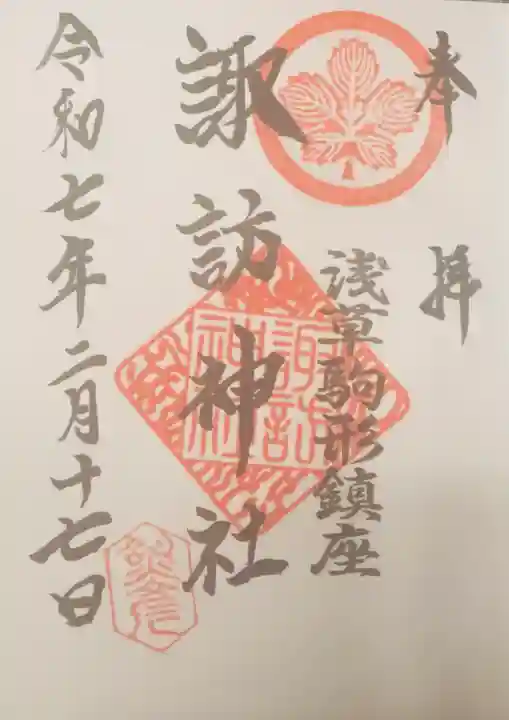 奉拝
浅草駒形鎮座
諏訪神社
諏訪神社
令和七年二月十七日